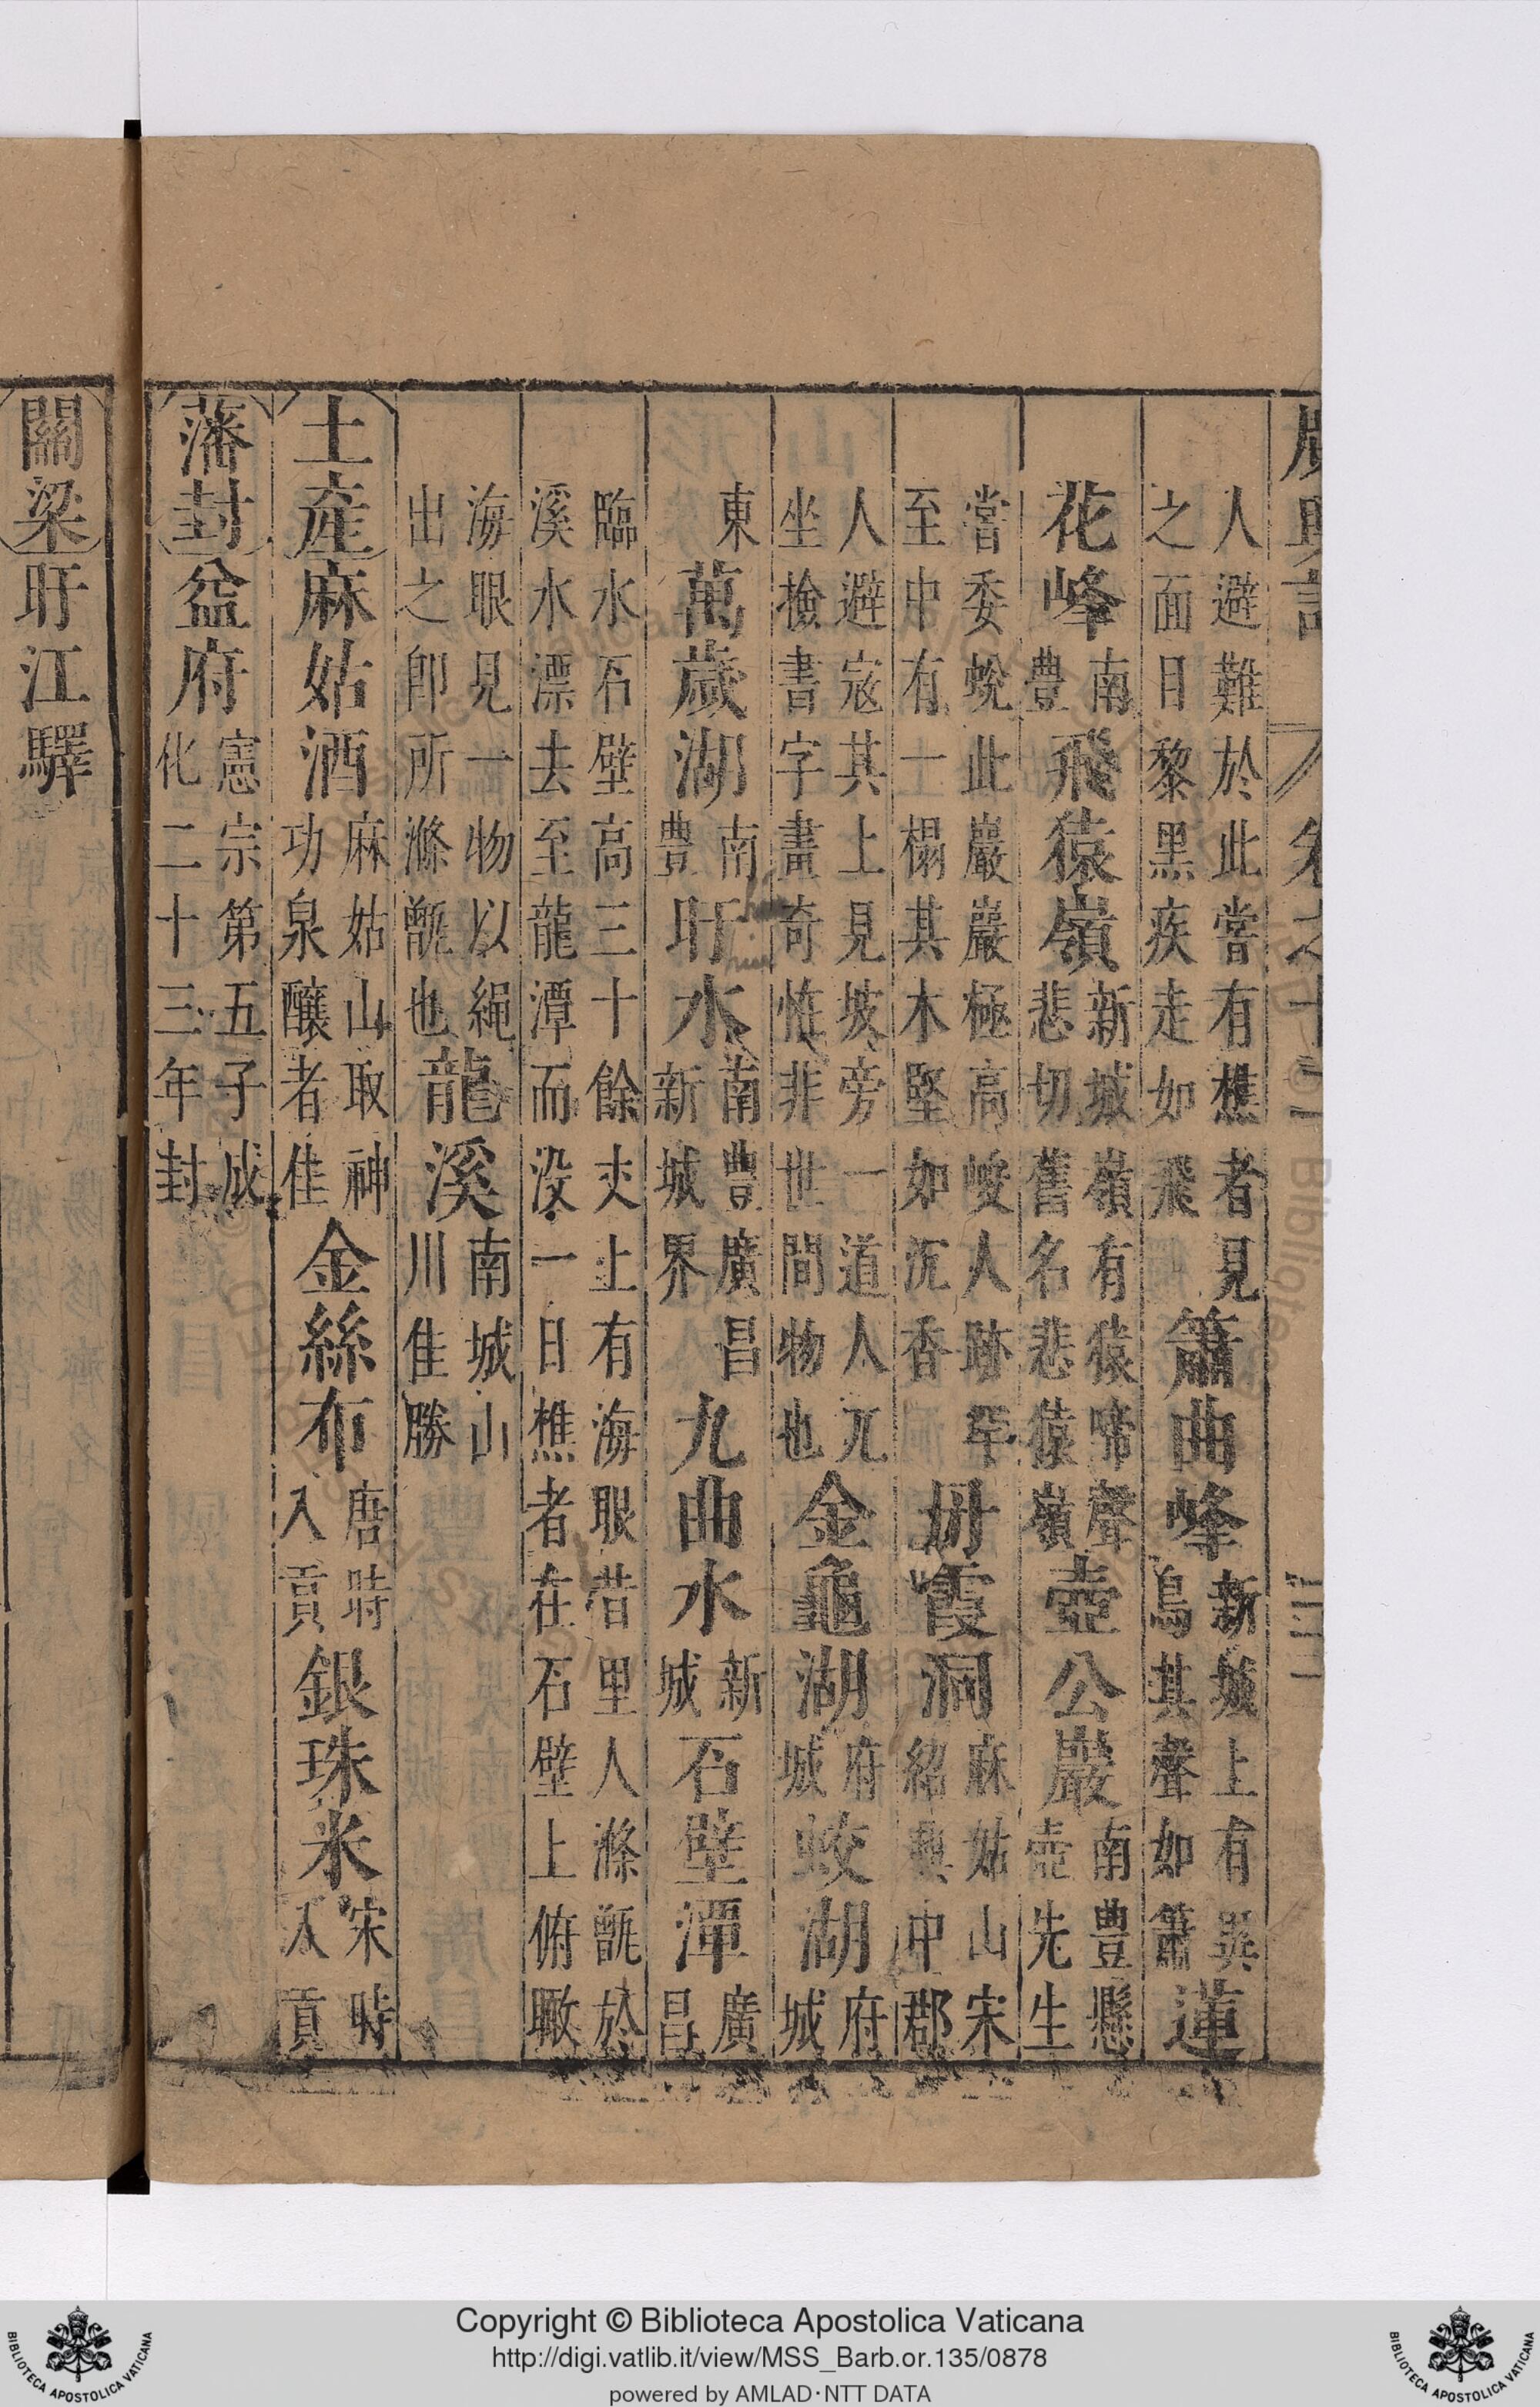 廣輿記 卷之十二
人避難於此嘗有樵者見
之面目黎黑疾走如飛
簫曲峰
新城上有異
鳥其聲如簫
蓮
花峰
南
豊
飛猿嶺
新城嶺有猿啼聲
悲切舊名悲猿嶺
壺公巖
南豊懸
壺先生
嘗委蛻此巖巖極高峻人跡罕
至中有一榻其木堅如沉香
丹霞洞
麻姑山宋
紹興中郡
人避寇其上見坡旁一道人兀
坐撿書字畫奇恠非世間物也
金龜湖
府
城
蛟湖
府
城
東
萬歲湖
南
豊
盱水
南豊廣昌
新城界
九曲水
新
城
石壁潭
廣
昌
臨水石壁高三十餘丈上有海眼昔里人滌甑於
溪水漂去至龍潭而没一日樵者在石壁上俯瞰
海眼見一物以繩
出之卽所滌甑也
龍溪
南城山
川佳勝
土產
麻姑酒
麻姑山取神
功泉釀者佳
金絲布
唐時
入貢
銀珠米
宋時
入貢
藩封
益府
憲宗第五子成
化二十三年封
關梁
盱江驛
Copyright © Biblioteca Apostolica Vaticana
http://digi.vatlib.it/view/MSS_Barb.or.135/0878
powered by AMLAD·NTT DATA
BIBLIOTECA APOSTOLICA VATICANA
BIBLIOTECA APOSTOLICA VATICANA